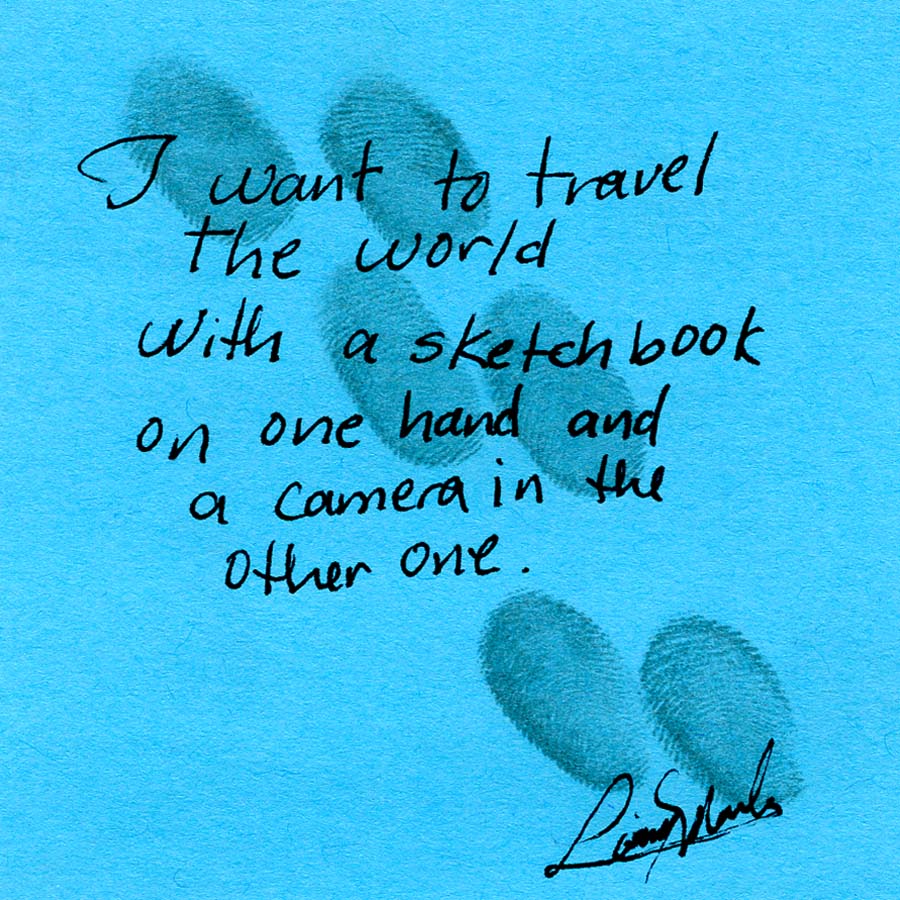 I want to travel
the world
with a sketchbook
on one hand and
a camera in the
other one.